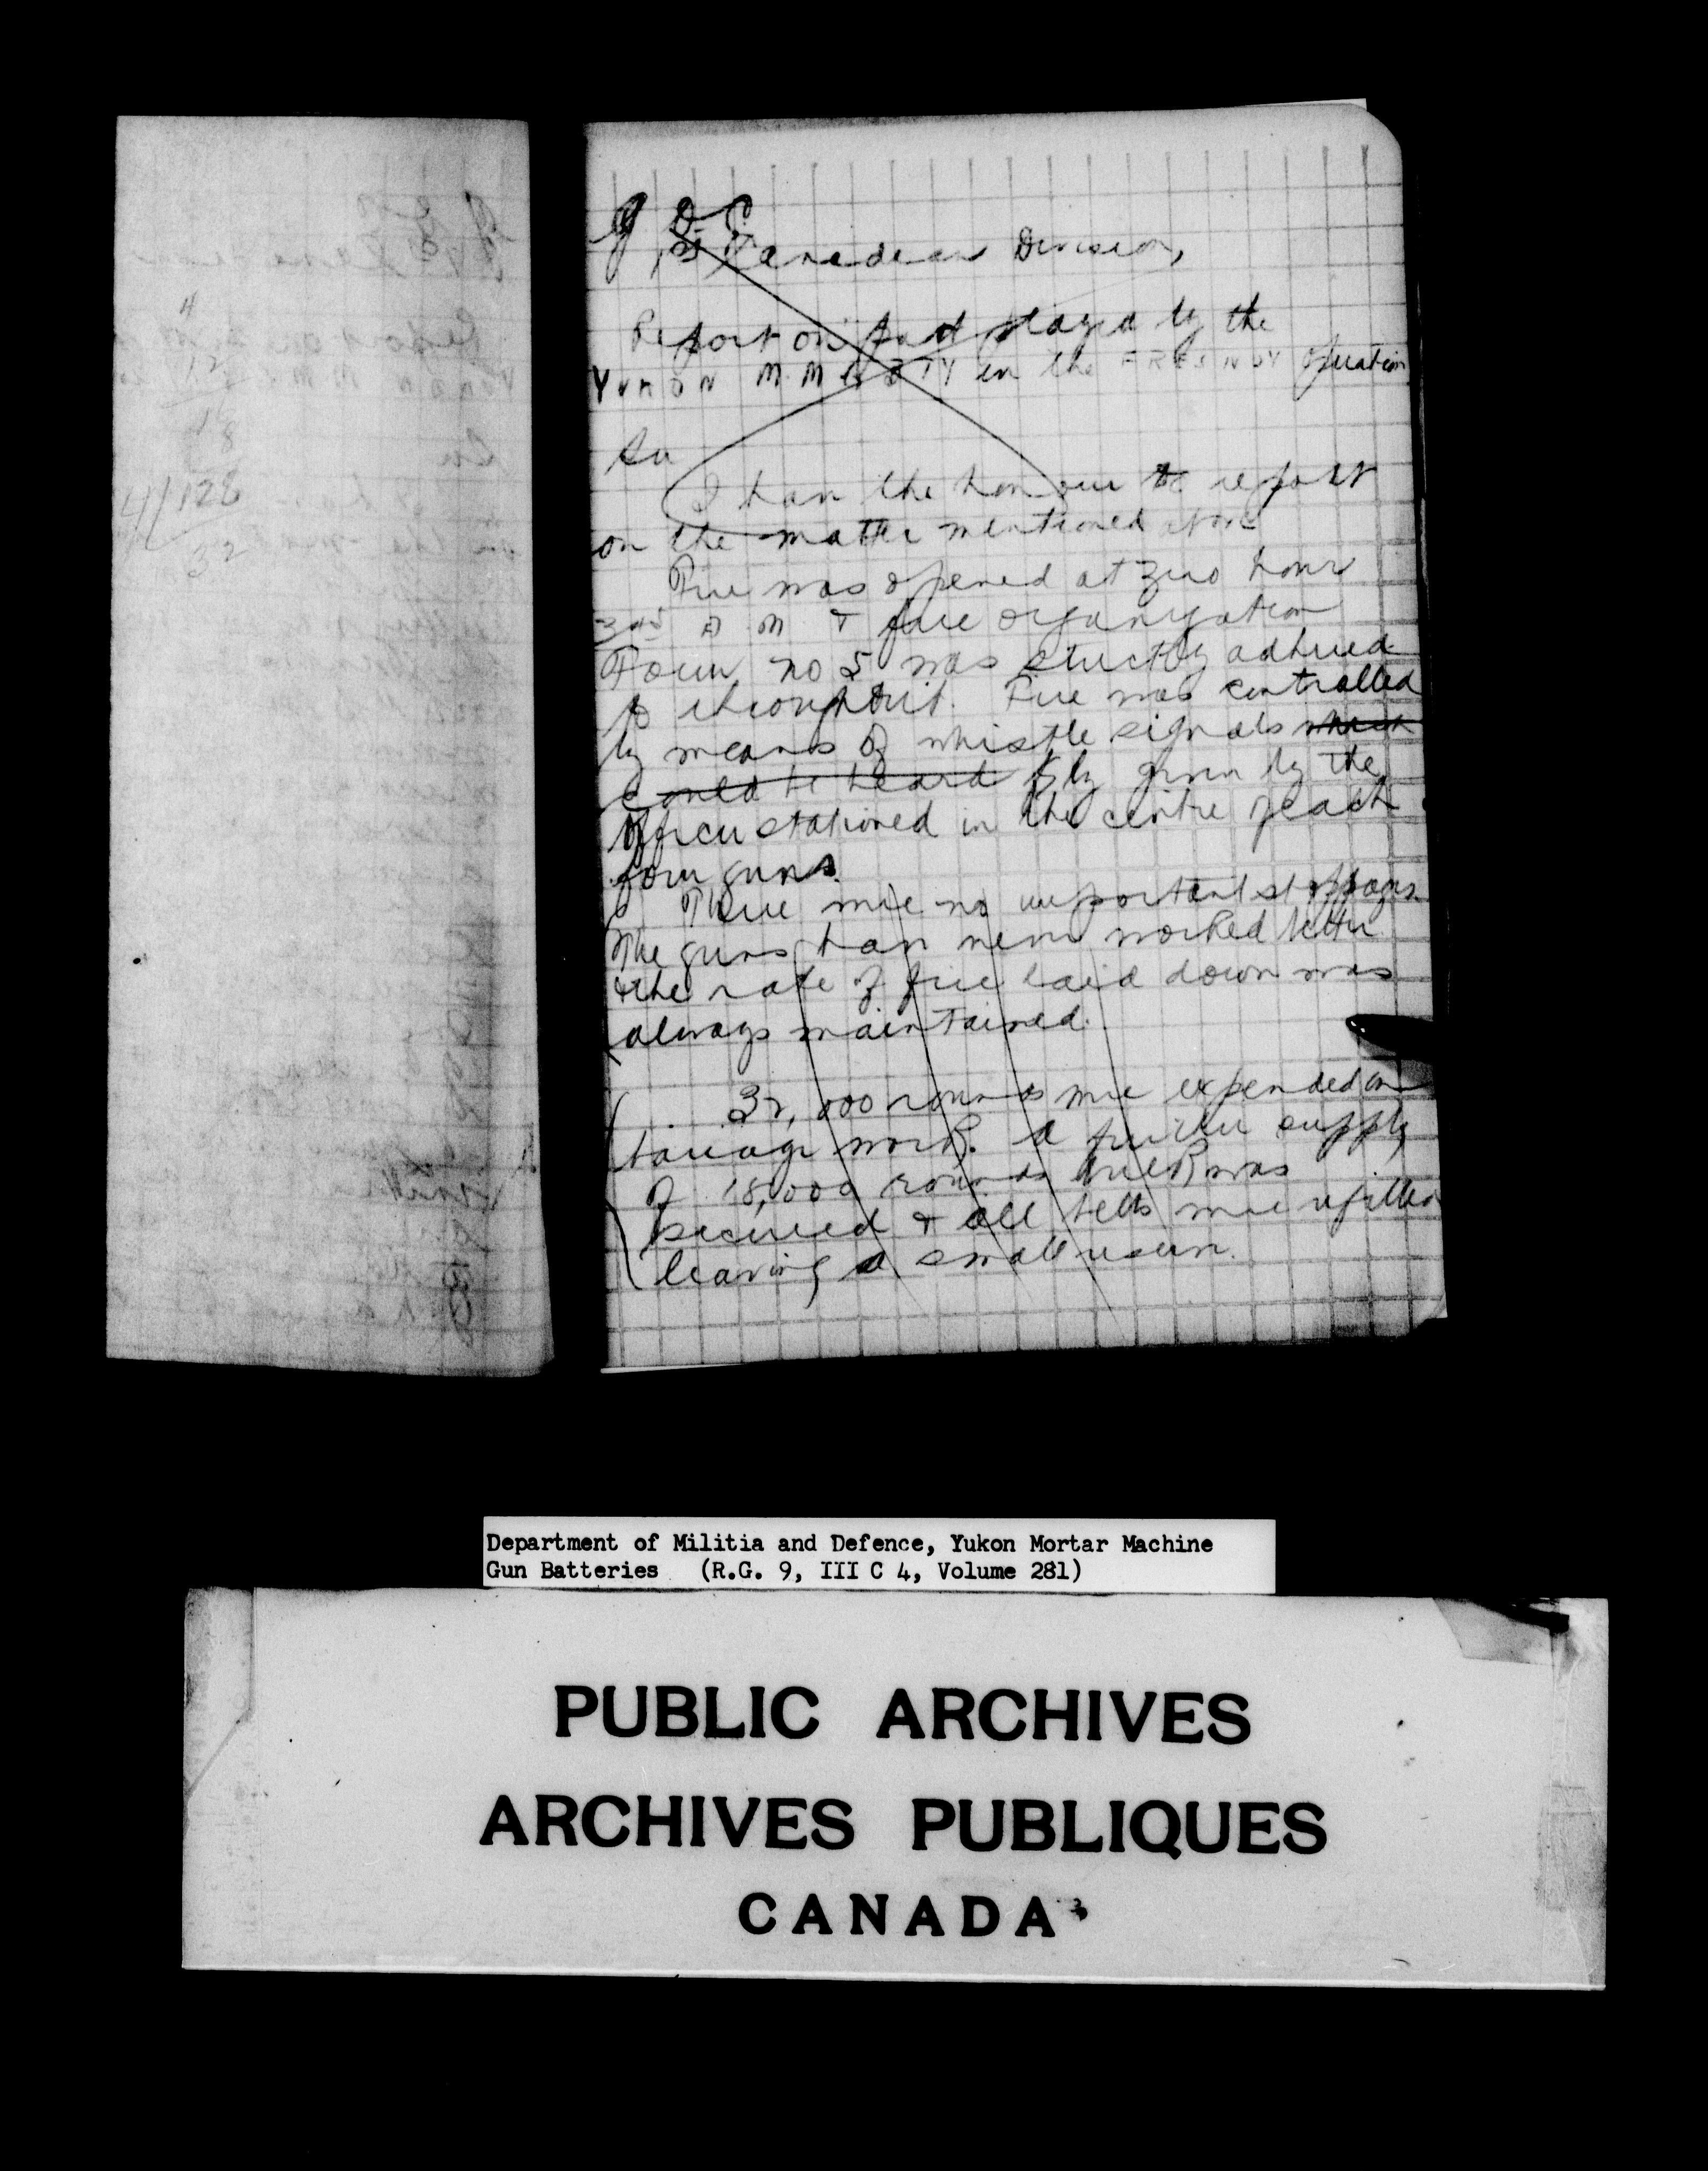 4
12
16
8
4/128
32
G O C
1st Canadian Division,
Report on part played by the
YUKON M.M.G BTY in the FRESNOY operation
Sir
I have the honour to report
on the matter mentioned above
Fire was opened at zero hour
3 45 A M & fire organization
Form no 5 was strictly adhered
to throughout. Fire was controlled
by means of whistle signals which
could be heard by given by the
Officer stationed in the centre of each
four guns.
There were no important stoppages.
The guns have never worked better
& the rate of fire laid down was
always maintained.
32,000 rounds were expended on
barrage work. A further supply
of 18,000 rounds bulk was
secured & all belts were refilled
leaving a small reserve.
Department of Militia and Defence, Yukon Mortar Machine
Gun Batteries (R.G. 9, III C 4, Volume 281)
PUBLIC ARCHIVES
ARCHIVES PUBLIQUES
CANADA